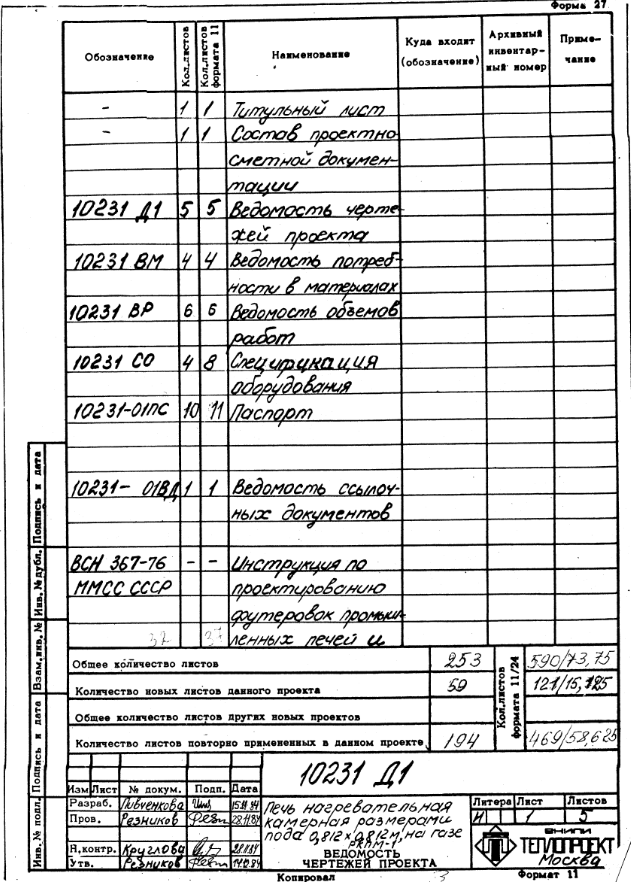 Форма 27
Обозначение Кол.листов Кол.листов формата 11 Наименование Куда входит (обозначение) Архивный инвентар-ный номер Приме-чание
- 1 1 Титульный лист
- 1 1 Состав проектно
сметной докумен-
тации
10231 Д1 5 5 Ведомость черте-
жей проекта
10231 ВМ 4 4 Ведомость потреб-
ности в материалах
10231 ВР 6 6 Ведомость объемов
работ
10231 СО 4 8 Спецификация
оборудования
10231-01ПС 10 11 Паспорт
10231- 01ВД 1 1 Ведомость ссылоч-
ных документов
ВСН 367-76 - - Инструкция по
ММСС СССР проектированию
футеровок промыш-
32 37 ленных печей и
Общее количество листов 253 Кол.листов формата 11/24 590/73,75
Количество новых листов данного проекта 59 121/15,125
Общее количество листов других новых проектов
Количество листов повторно примененных в данном проекте 194 469/58,625
10231 Д1
Изм Лист № докум. Подп. Дата
Разраб. Ливченкова 15.11.84
Пров. Резников 28.11.84
Н.контр. Круглова 28.11.84
Утв. Резников 14.12.84
Печь нагревательная
камерная размерами
пода 0,812х0,812м, на газе
РКПМ-1
ВЕДОМОСТЬ
ЧЕРТЕЖЕЙ ПРОЕКТА
Литера Лист Листов
И 1 5
ВНИПИ
ТЕПЛОПРОЕКТ
Москва
Копировал 3 Формат 11
Инв. № подл. Подпись и дата Взам.инв. № Инв. № дубл. Подпись и дата